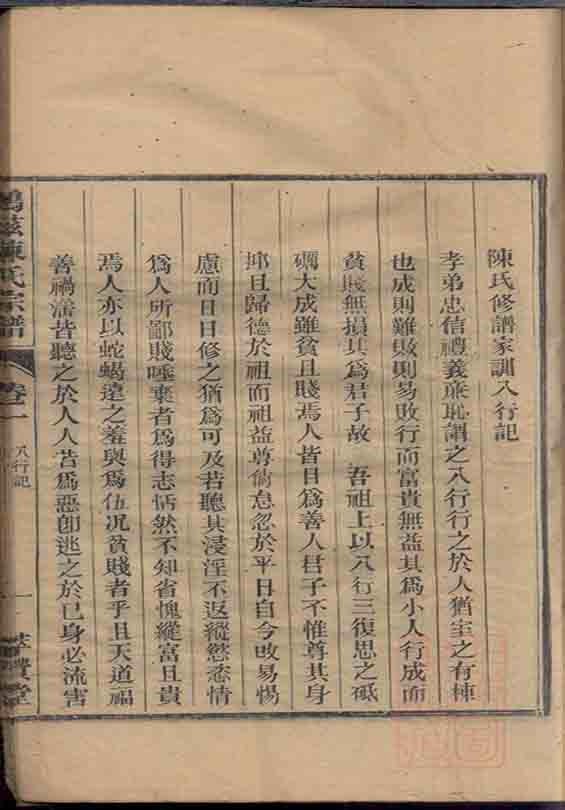 陳氏修譜家訓八行記
孝弟忠信禮義廉恥謂之八行行之於人猶室之有棟
也成則難敗則易敗行而富貴無益其為小人行成而
貧賤無損其為君子故　吾祖上以八行三復思之砥
礪大成雖貧且賤焉人皆目為善人君子不惟尊其身
抑且歸德於祖而祖益尊倘怠忽於平日自今改易惕
慮而日日修之猶為可及若聽其浸淫不返縱慾恣情
為人所鄙賤唾棄者為得志恬然不知省愧縱富且貴
焉人亦以蛇蝎遠之羞與為伍况貧賤者乎且天道福
善禍淫皆聽之於人人苦為惡卽逃之於已身必流害
陳氏宗譜
卷一
八行記
一
堂